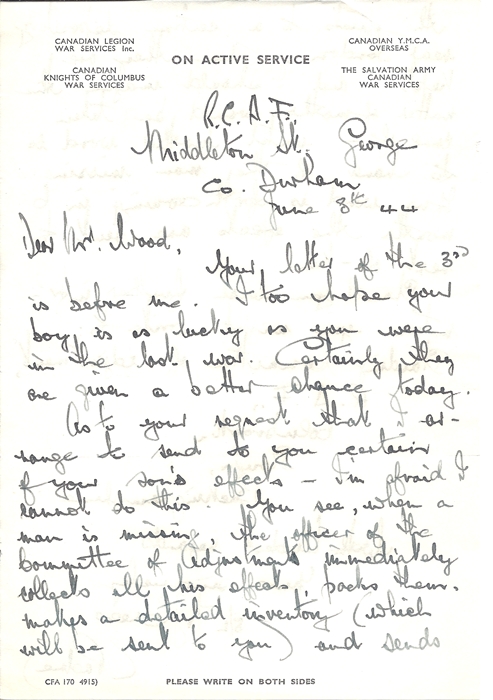 CANADIAN LEGION
WAR SERVICES Inc.
CANADIAN
KNIGHTS OF COLUMBUS
WAR SERVICES
ON ACTIVE SERVICE
CANADIAN Y.M.C.A.
OVERSEAS
THE SALVATION ARMY
CANADIAN
WAR SERVICES
R.C.A.F.
Middleton St. George
Co. Durham
June 8th 44
Dear Mr. Wood,
Your letter of the 3rd
is before me. I too hope your
boy is as lucky as you were
in the last war. Certainly they
are given a better chance today.
As to your request that I ar-
range to send to you certain
of your son's effects – I'm afraid I
cannot do this. You see, when a
man is missing, the officer of the
Committee of Adjustments immediately
collects all his effects, packs them,
makes a detailed inventory (which
will be sent to you) and sends
CFA 170 4915)
PLEASE WRITE ON BOTH SIDES